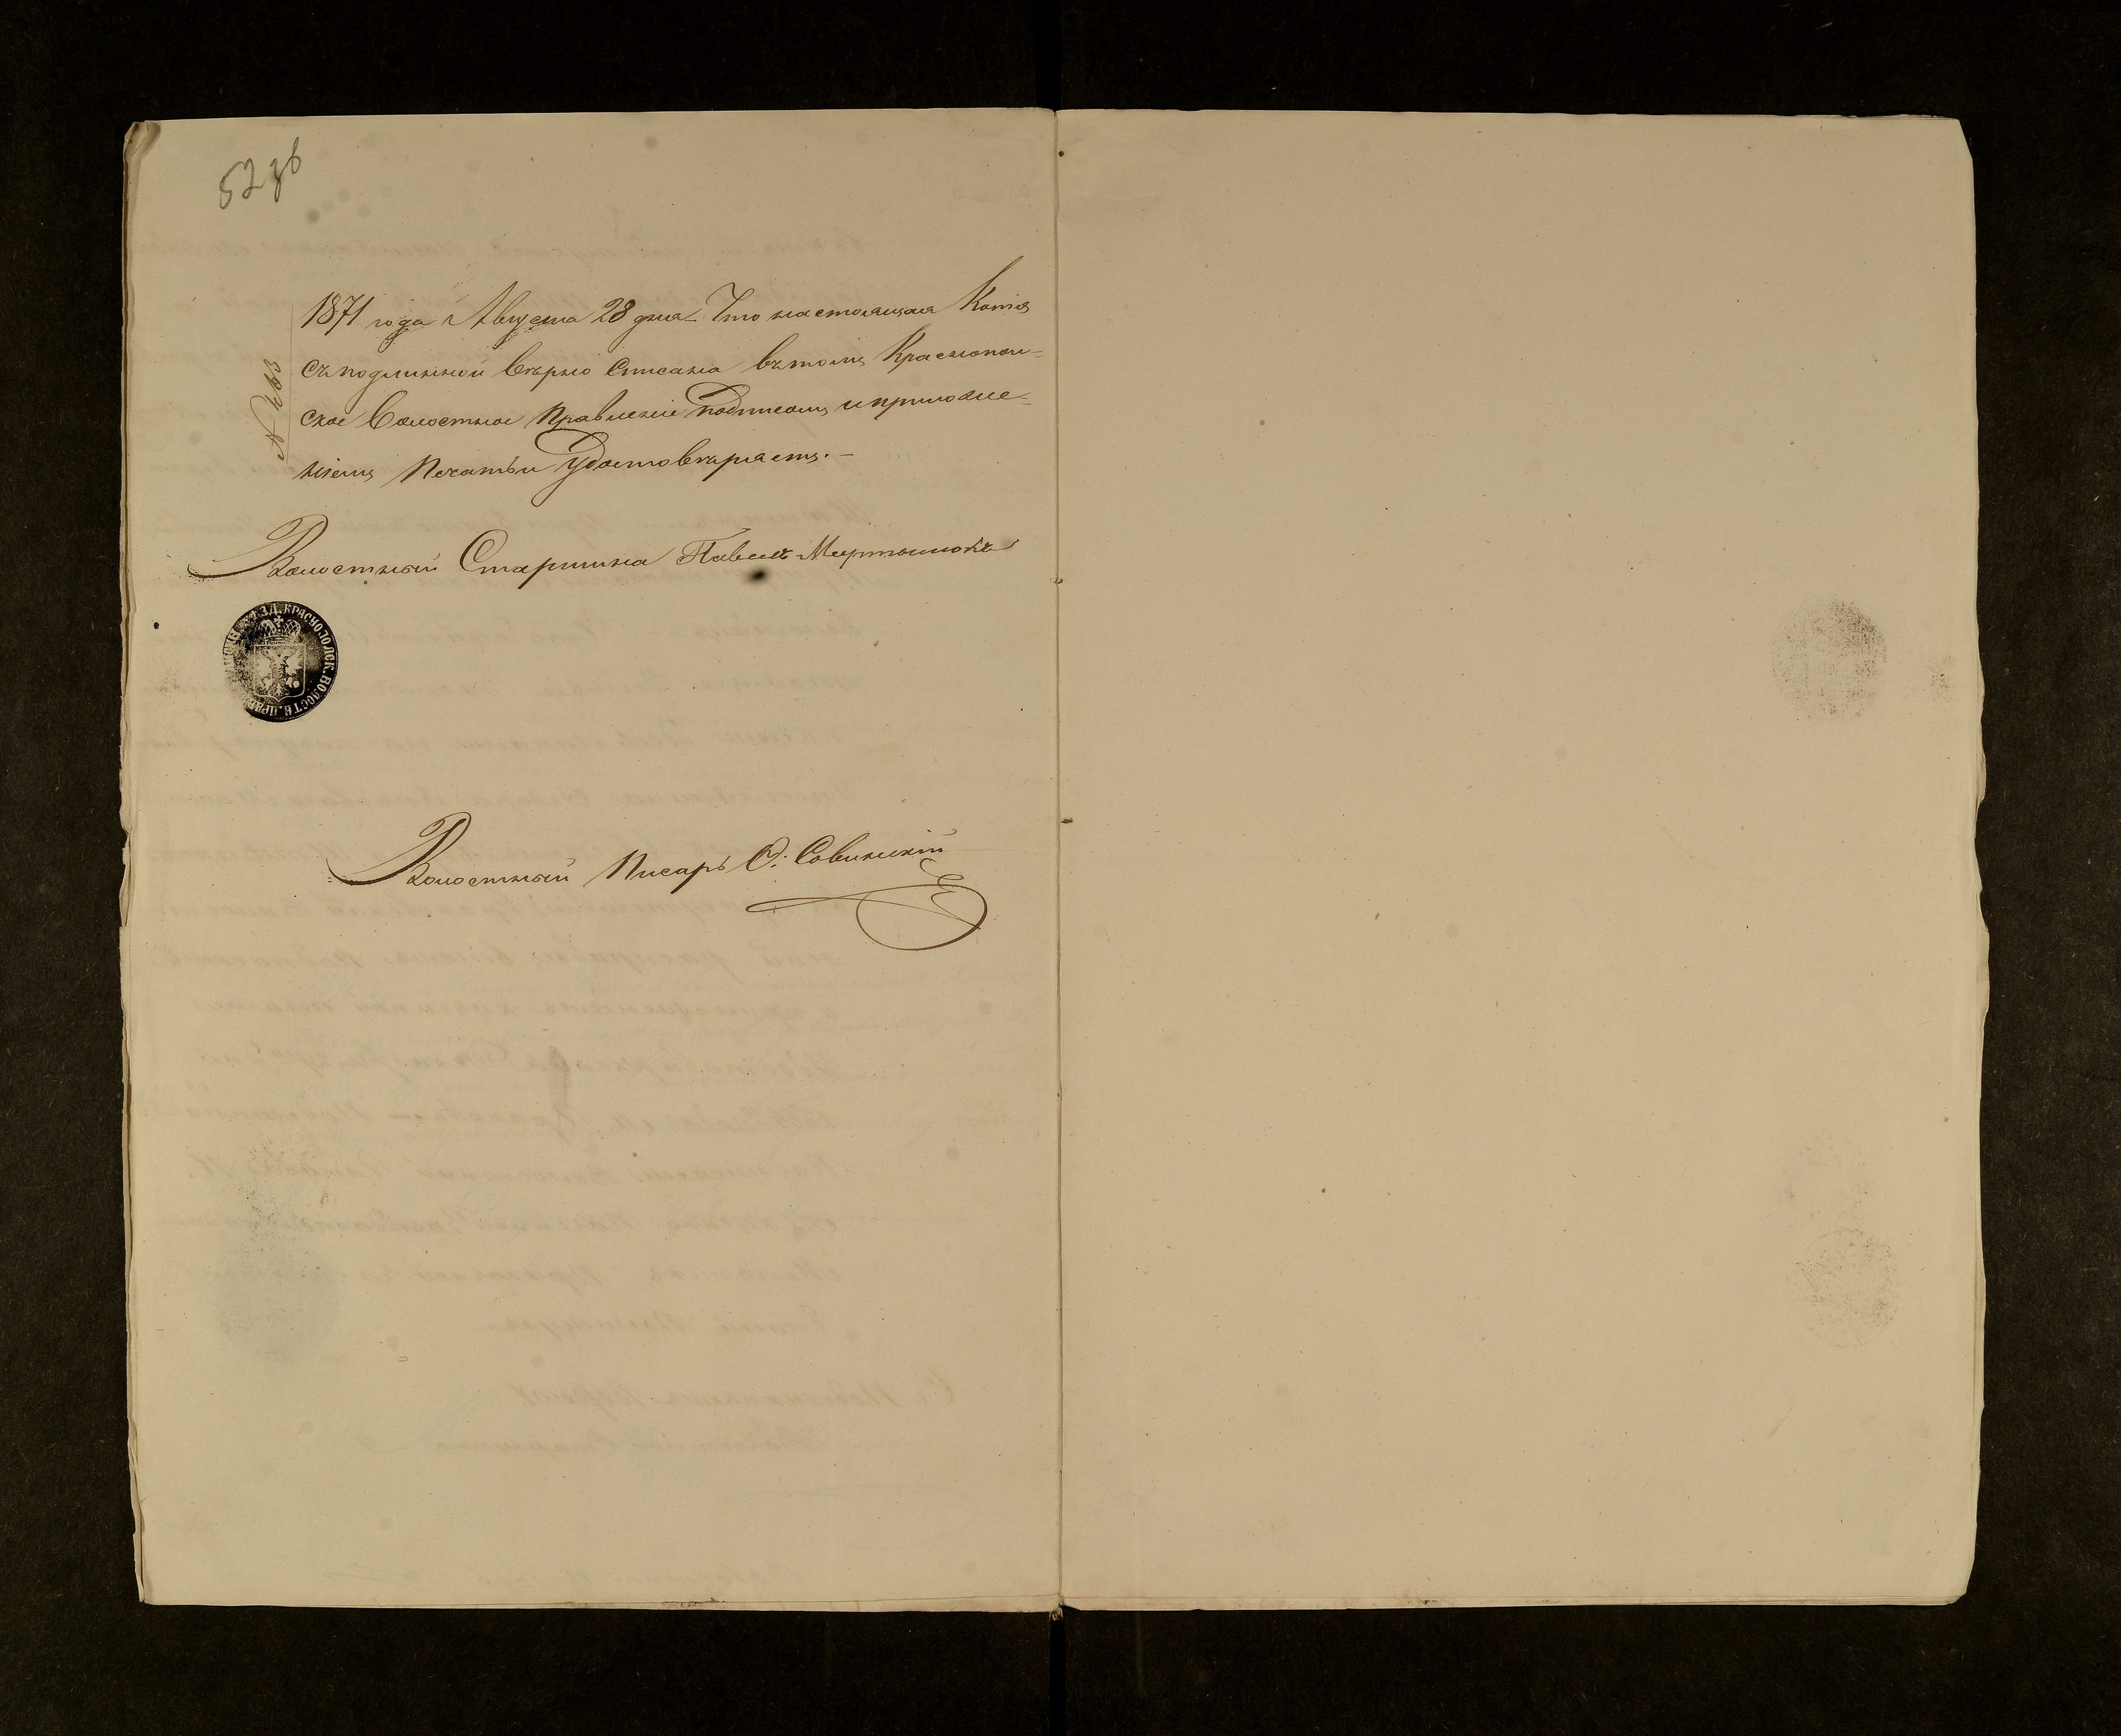 52 зв
1871 года Августа 28 дня Что настоящая Копія
съ подлинной вѣрно Списана въ томъ Краснопол-
ское Волостное Правленіе подписомъ и приложе-
ніемъ Печати Удостовѣряетъ.-
Волостный Старшина Павелъ Мартынюкъ
УѢЗД. КРАСНОПОЛСК. ВОЛОСТН. ПРАВ
Волостный Писарь С. Совинскій